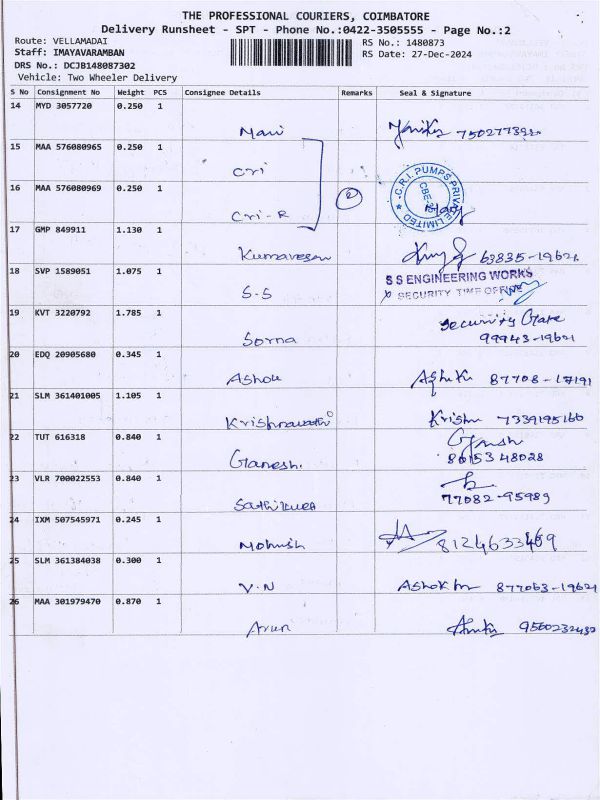 THE PROFESSIONAL COURIERS, COIMBATORE
Delivery Runsheet - SPT - Phone No.:0422-3505555 - Page No.:2
Route: VELLAMADAI
RS No.: 1480873
Staff: IMAYAVARAMBAN
RS Date: 27-Dec-2024
DRS No.: DCJB148087302
Vehicle: Two Wheeler Delivery
S No Consignment No Weight PCS Consignee Details Remarks Seal & Signature
14 MYD 3057720 0.250 1
Mani
15 MAA 576080965 0.250 1
Cri
16 MAA 576080969 0.250 1
Cri-R
2
C.R.I. PUMPS PRIVATE LIMITED
17 GMP 849911 1.130 1
Kumaresan 63835-19621
18 SVP 1589051 1.075 1
S-S
S S ENGINEERING WORKS
SECURITY TIME OFFICE
19 KVT 3220792 1.785 1
Sorna
Security Gate
99943-19621
20 EDQ 20905680 0.345 1
Ashok 87708-17191
21 SLM 361401005 1.105 1
Krishnaveni Krishn 7339195166
22 TUT 616318 0.840 1
Ganesh.
8015348028
23 VLR 700022553 0.840 1
77082-95989
24 IXM 507545971 0.245 1
8124633469
25 SLM 361384038 0.300 1
V.N Ashok m 877063-19621
26 MAA 301979470 0.870 1
Arun 9500232432